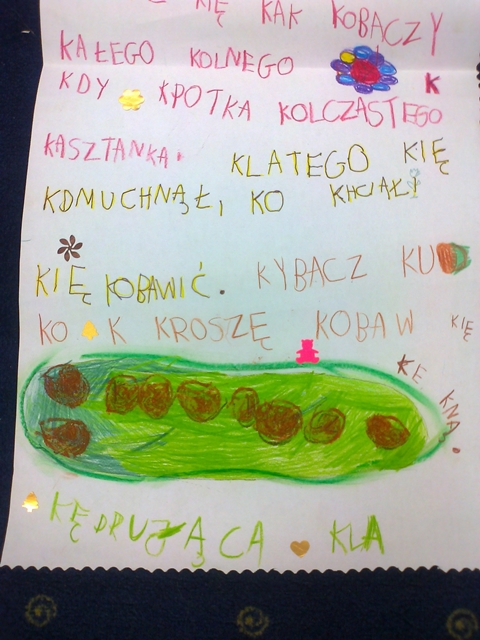 KIĘ KAK KOBACZY
KAŁEGO KOLNEGO
KDY KPOTKA KOLCZASTEGO K
KASZTANKA. KLATEGO KIĘ
KDMUCHNĄŁ, KO KHCIAŁ
KIĘ KOBAWIĆ. KYBACZ KU
KO K KROSZĘ KOBAW KIĘ
KE KNĄ.
KĘDRUJĄCA KLA